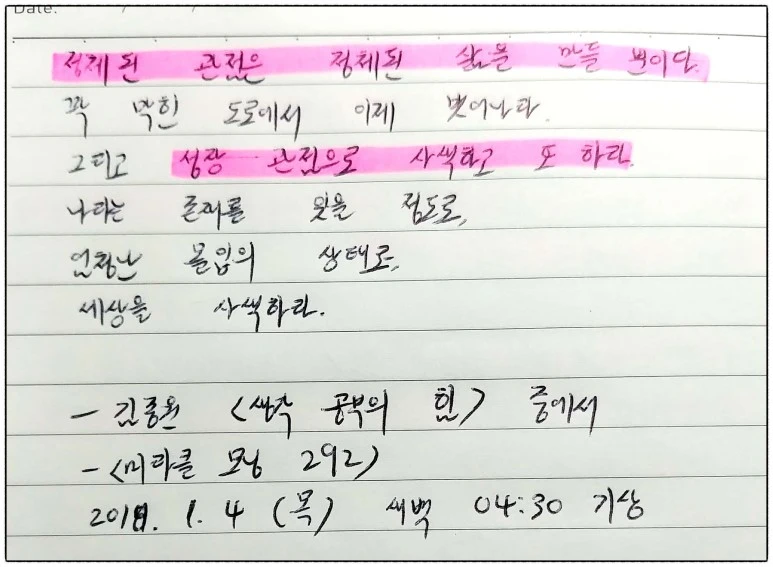 Date:
정체된 관점은 정체된 삶을 만들 뿐이다.
꽉 막힌 도로에서 이제 벗어나라.
그리고 성장 관점으로 사색하고 또 하라.
나라는 존재를 잊을 정도로,
엄청난 몰입의 상태로,
세상을 사색하라.
- 김종원 <생각 공부의 힘> 중에서
- <미라클 모닝 292>
2018. 1. 4 (목) 새벽 04:30 기상